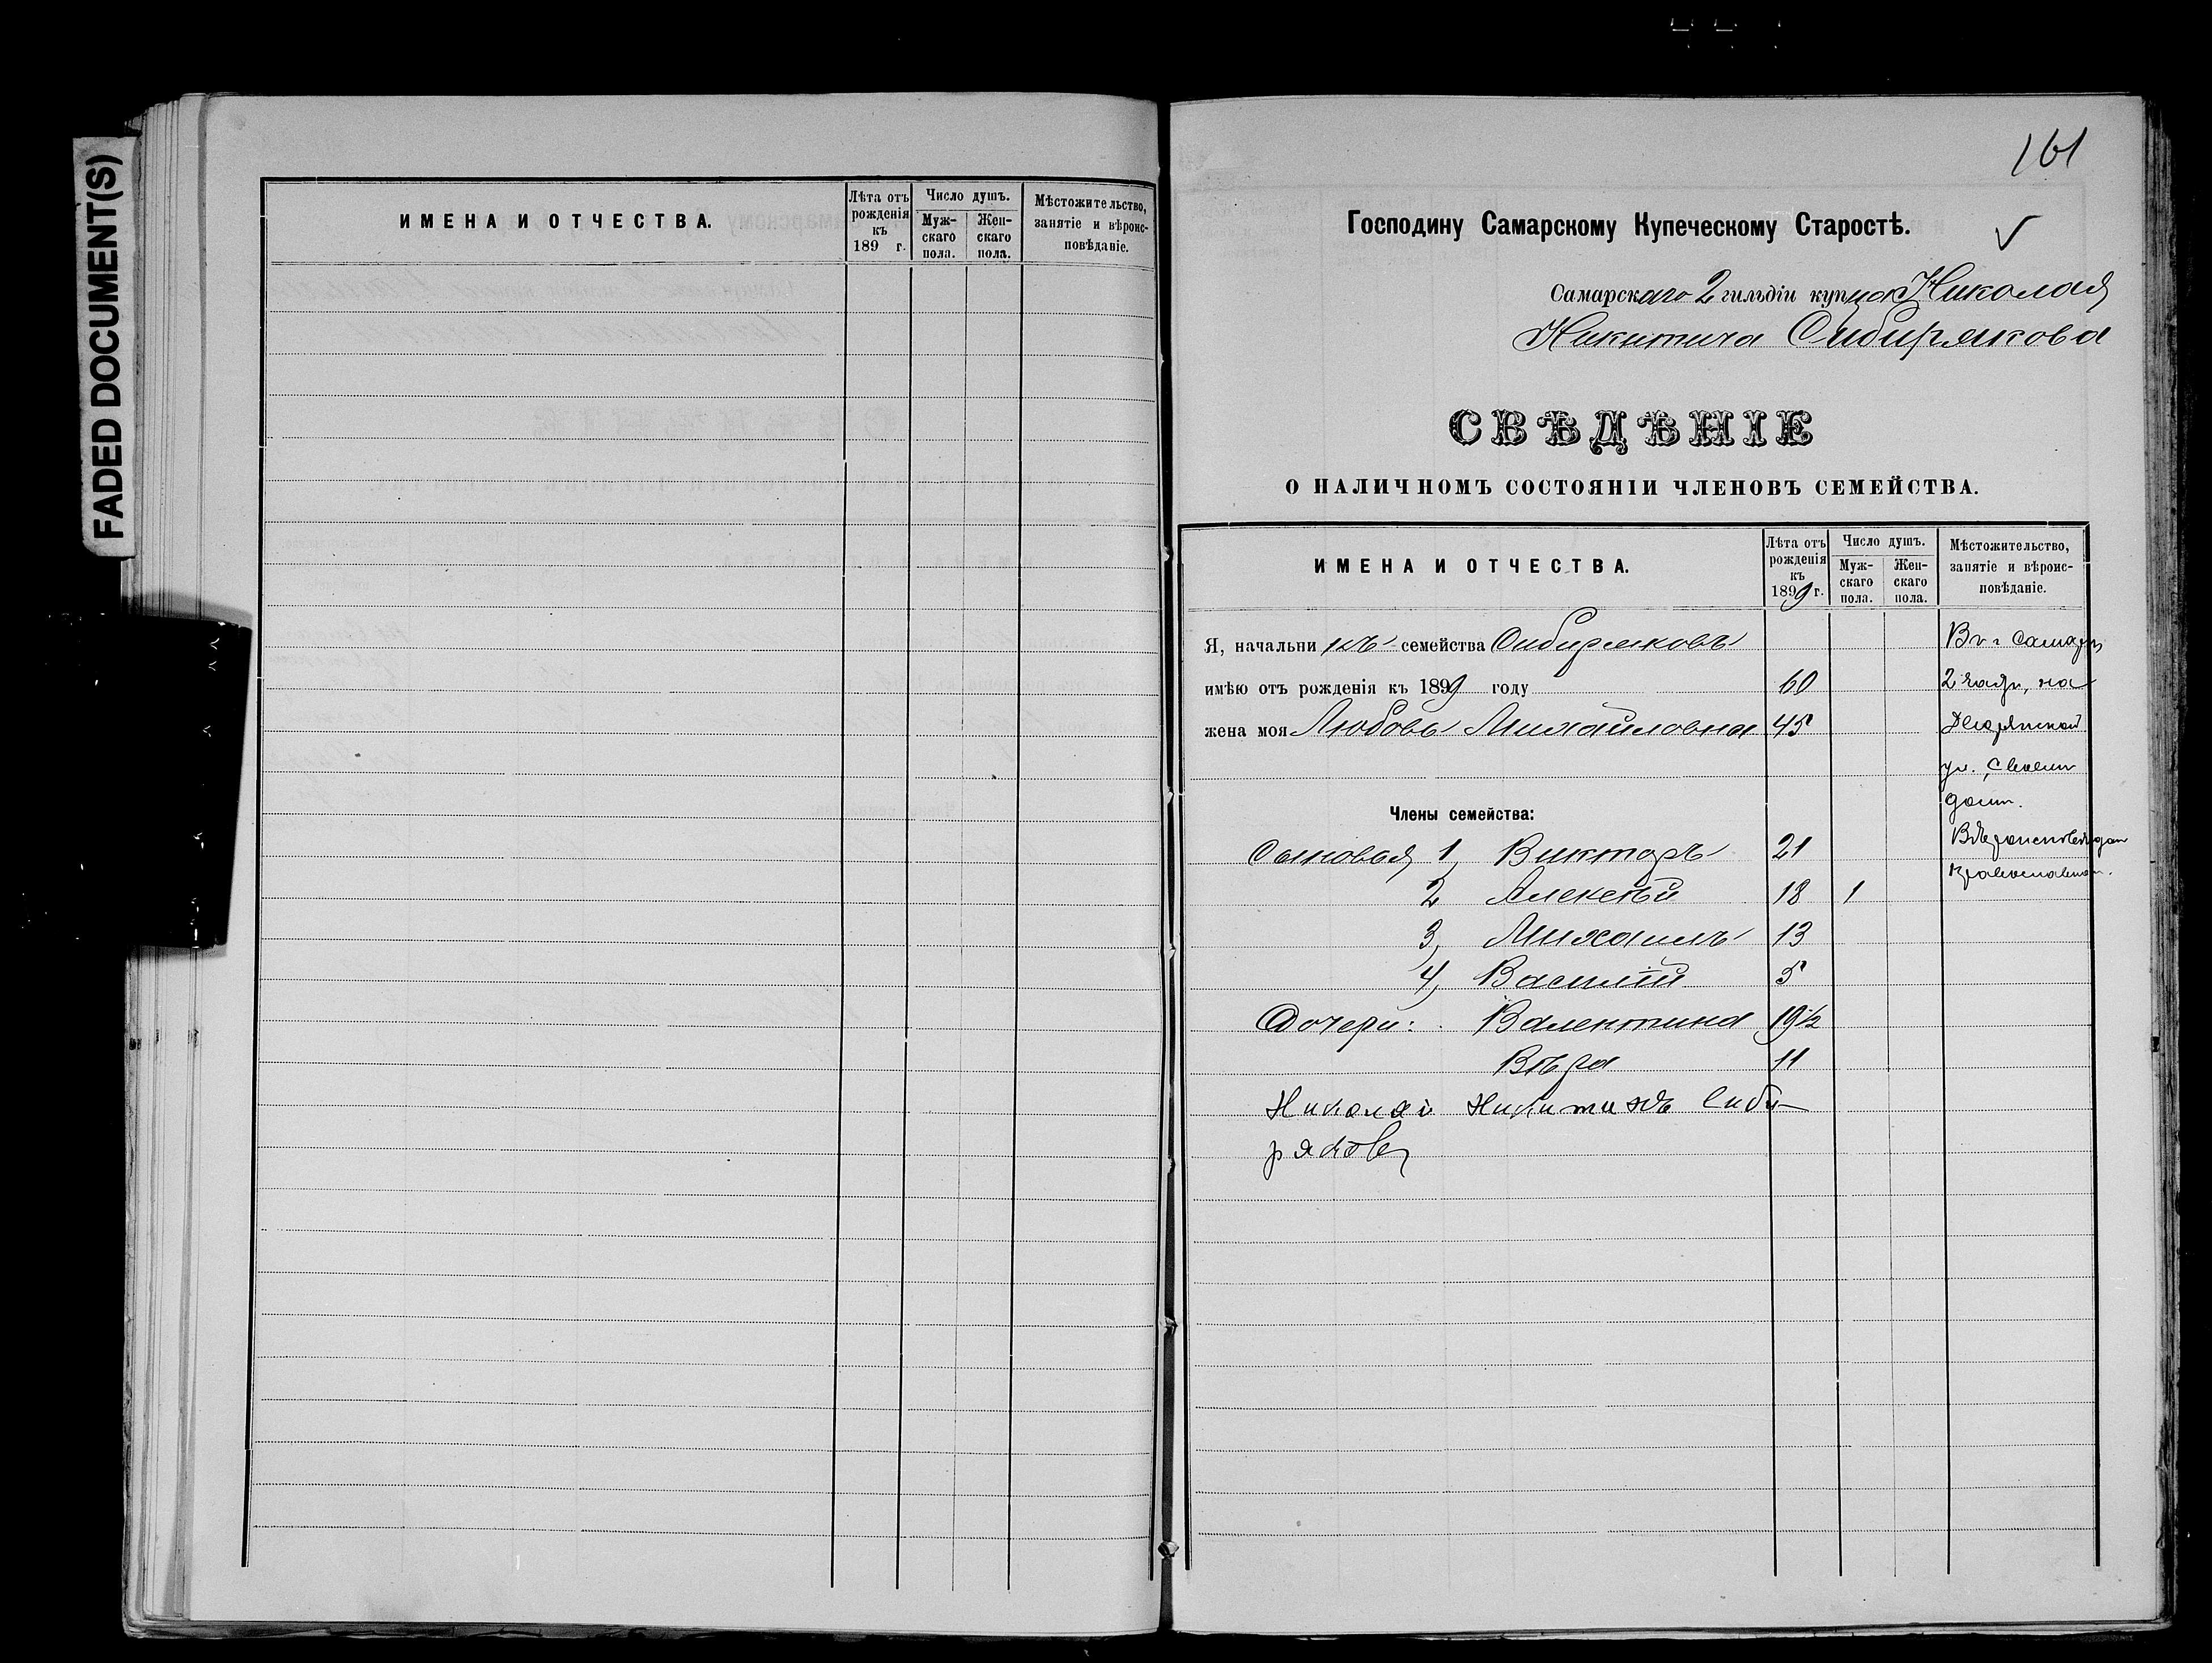 FADED DOCUMENT(S)
ИМЕНА И ОТЧЕСТВА.
Лѣта отъ рожденія къ 189 г.
Число душъ.
Мужскаго пола.
Женскаго пола.
Мѣстожительство, занятіе и вѣроисповѣданіе.
161
Господину Самарскому Купеческому Старостѣ.
Самарскаго 2 гильдіи купца Николая
Никитича Сибирякова
СВѢДѢНІЕ
О НАЛИЧНОМЪ СОСТОЯНІИ ЧЛЕНОВЪ СЕМЕЙСТВА.
ИМЕНА И ОТЧЕСТВА.
Лѣта отъ рожденія къ 1899 г.
Число душъ.
Мужскаго пола.
Женскаго пола.
Мѣстожительство, занятіе и вѣроисповѣданіе.
Я, начальникъ семейства Сибиряковъ
Въ г Самарѣ
имѣю отъ рожденія къ 1899 году 60
2 части, на
жена моя Любовь Михайловна 45
Дворянской
ул. Своем
домѣ.
Члены семейства:
Вѣроисповѣдан
Сыновья 1, Викторъ 21
православнаго.
2 Алексѣй 18 1
3, Михаилъ 13
4, Василій 5
Дочери: Валентина 19½
Вѣра 11
Николай Никитичъ Сиби-
ряковъ